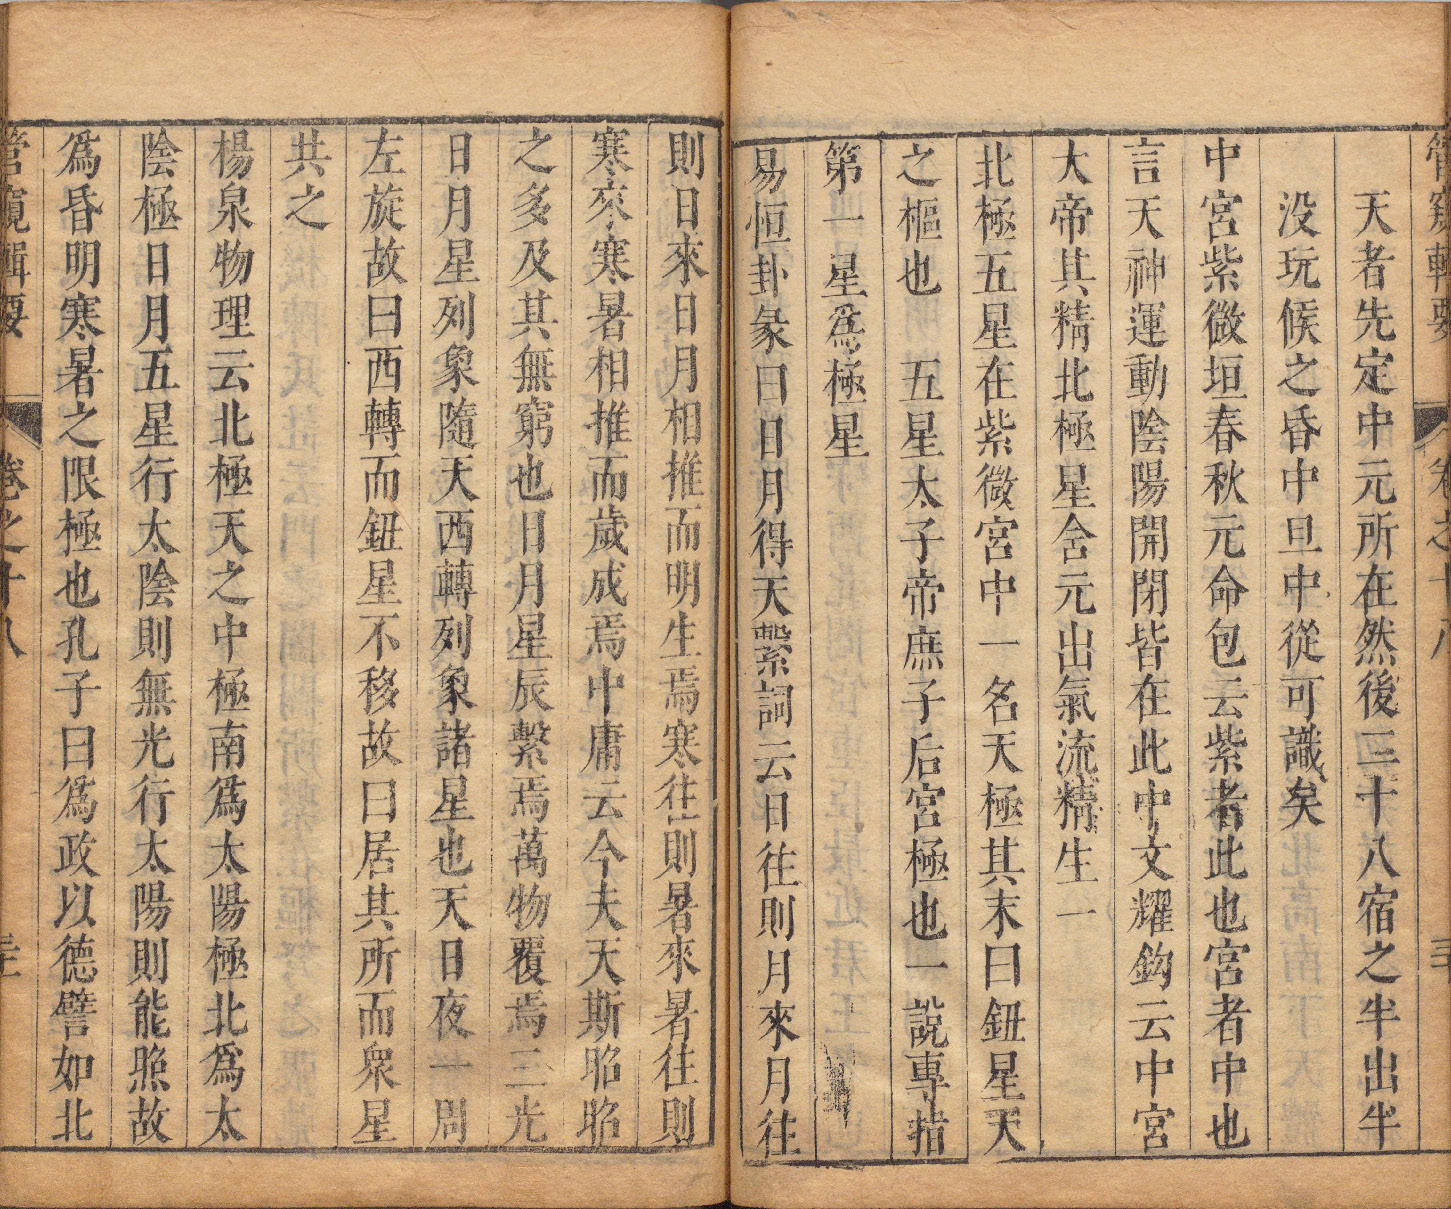 管窺輯要
卷之十八
天者先定中元所在然後三十八宿之半出半
没玩候之昏中旦中從可識矣
中宮紫微垣春秋元命包云紫者此也宮者中也
言天神運動陰陽開閉皆在此中文耀鈎云中宮
大帝其精北極星含元出氣流精生一
北極五星在紫微宮中一名天極其末曰鈕星天
之樞也　五星太子帝庶子后宮極也一說專指
第一星爲極星
易恒卦彖曰日月得天繫詞云日往則月來月往
則日來日月相推而明生焉寒往則暑來暑往則
寒來寒暑相推而歲成焉中庸云今夫天斯昭昭
之多及其無窮也日月星辰繫焉萬物覆焉三光
日月星列象隨天西轉列象諸星也天日夜一周
左旋故曰西轉而鈕星不移故曰居其所而衆星
共之
楊泉物理云北極天之中極南爲太陽極北爲太
陰極日月五星行太陰則無光行太陽則能照故
爲昏明寒暑之限極也孔子曰爲政以德譬如北
管窺輯要
卷之十八